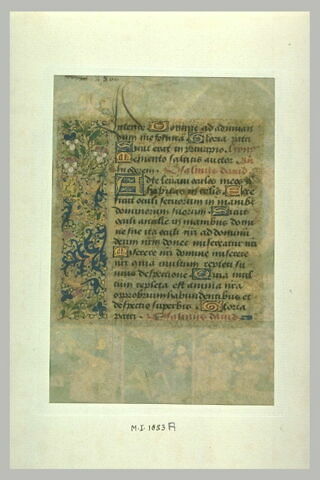 intende Domine ad adiuvan
dum me festina Gloria patri
Sicut erat in principio
Memento salutis auctor
Psalmus david
Ad te levavi oculos meos
habitas in celis Ecce
sicut oculi servorum in manibus
dominorum suorum Sicut
oculi ancille in manibus domi
ne sue ita oculi nri ad dominum
deum nrm donec misereatur nri
Miserere nri domine miserere
nri quia multum repleti su
mus despectione Quia mul
tum repleta est anima nra
opprobrium habundantibus et
despectio superbis Gloria
patri Psalmus david
M.I. 1853 A